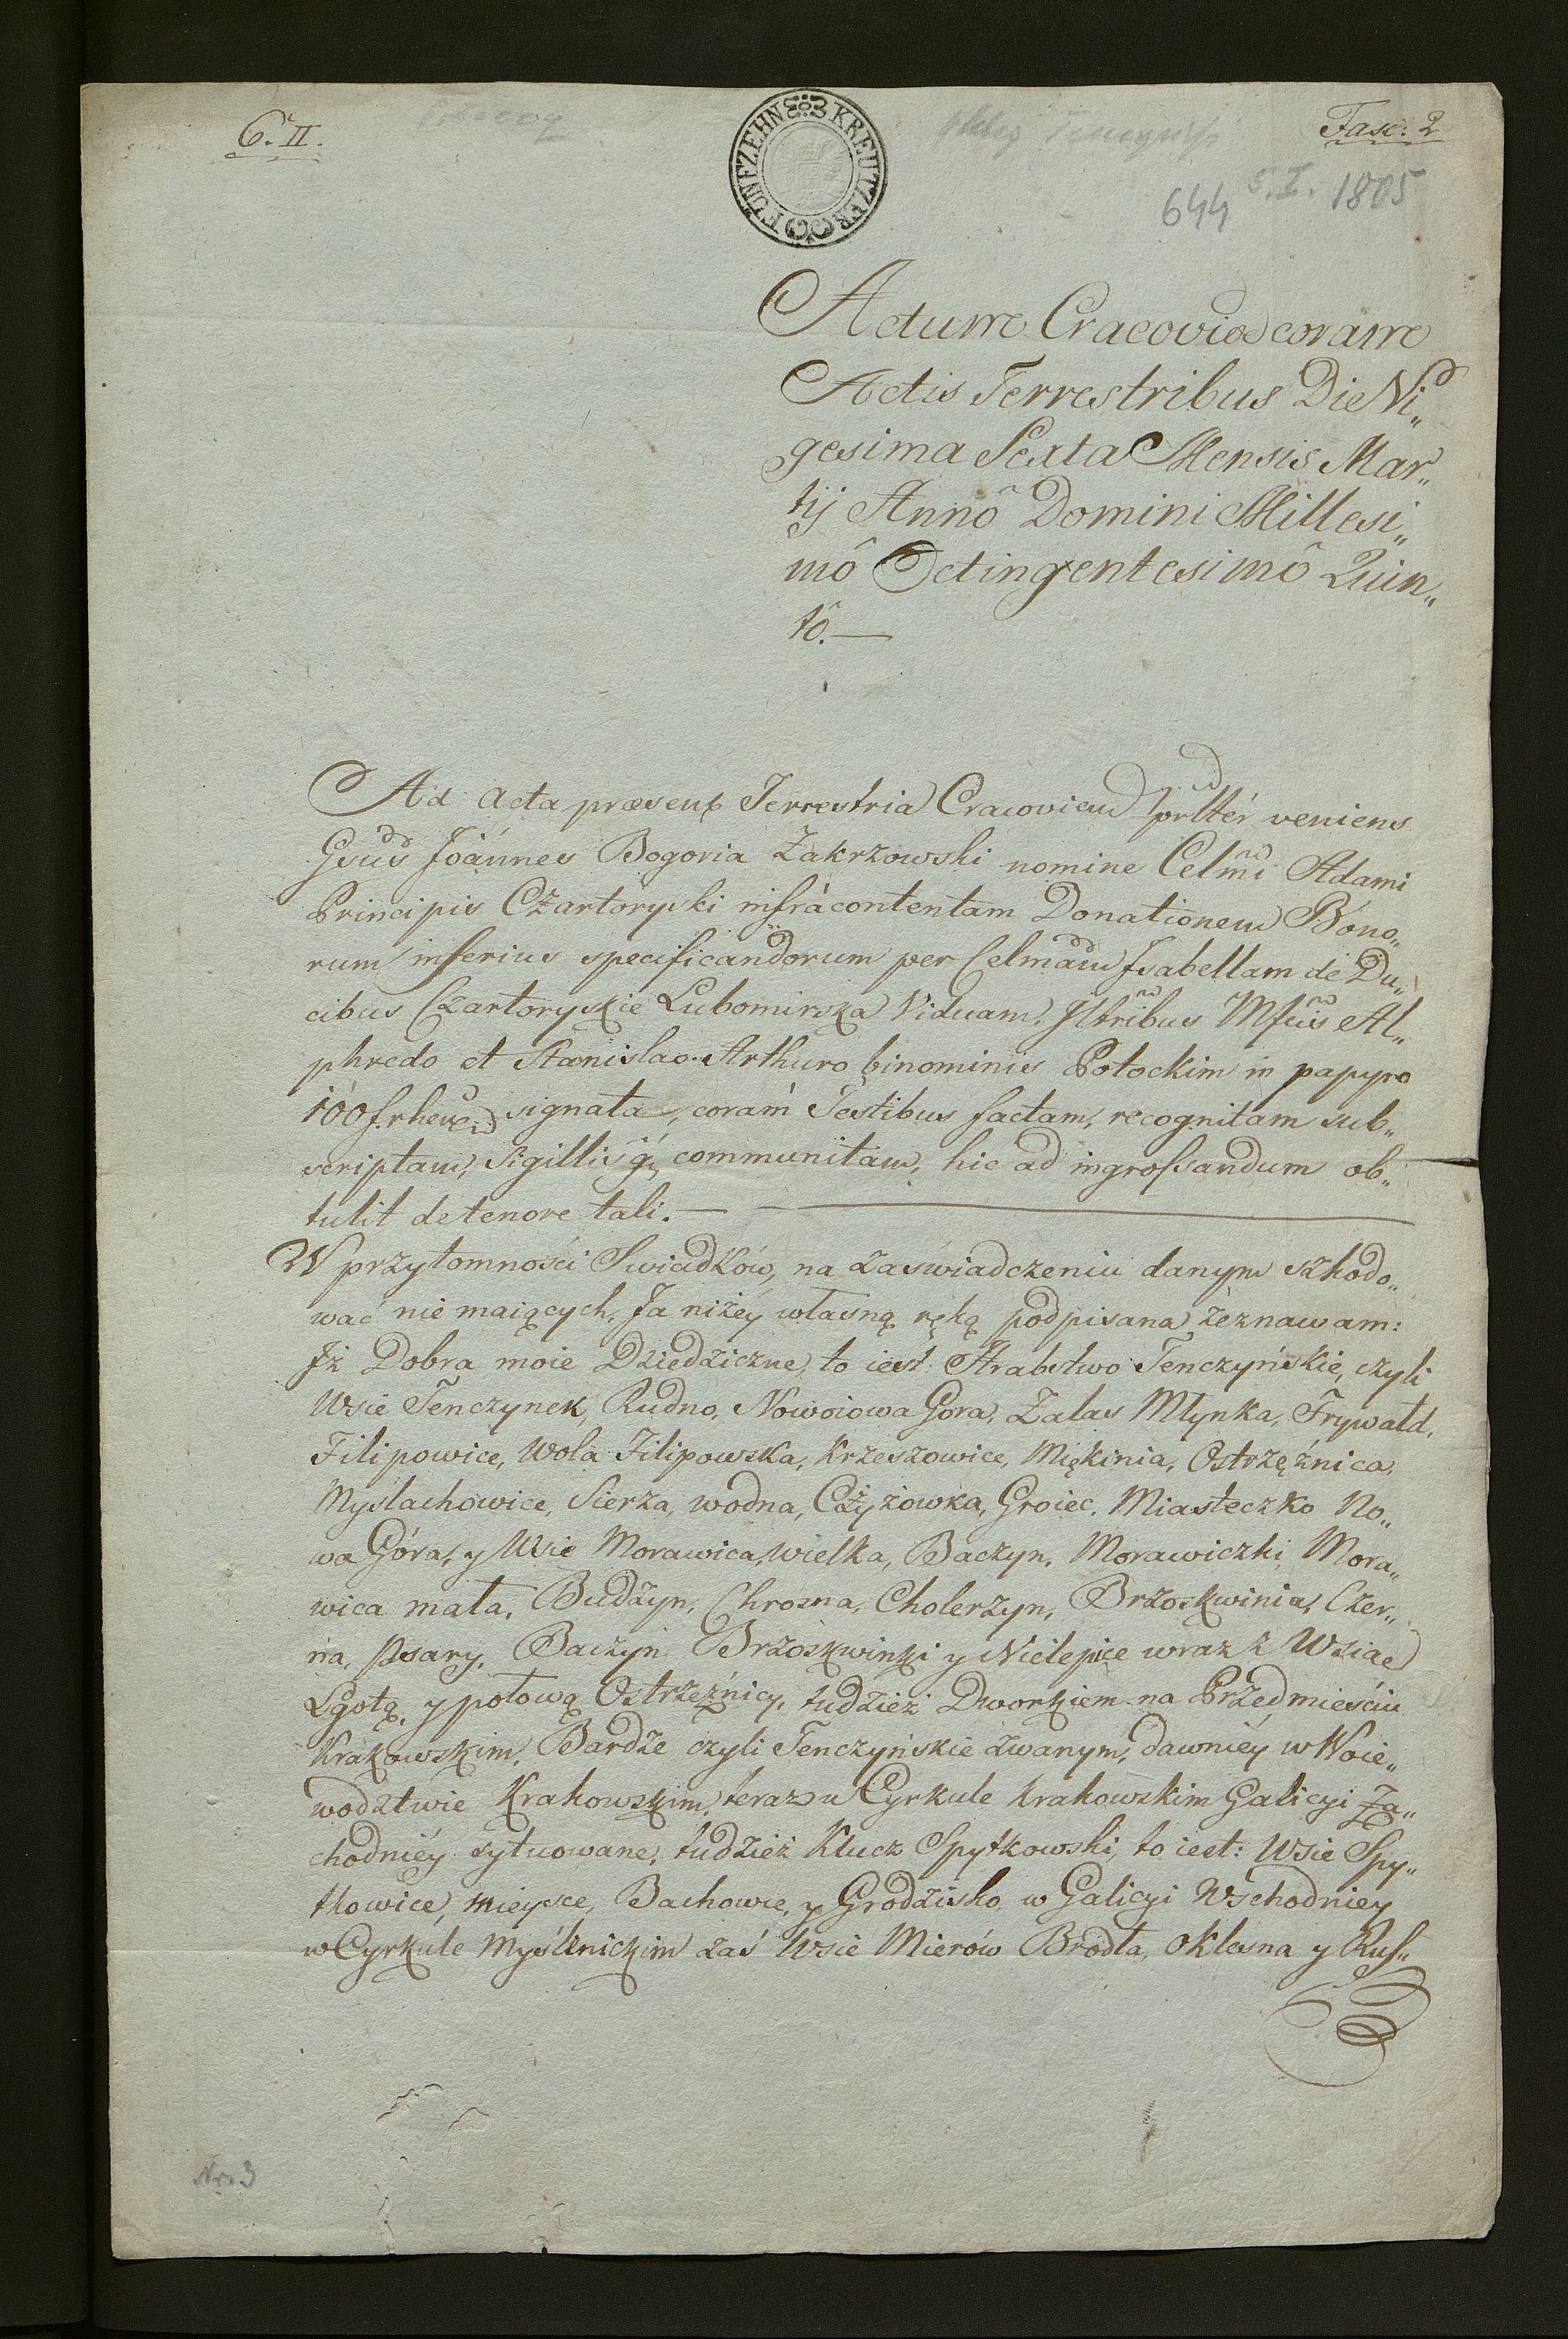 6. II.
Potoccy
FUNFZEHN KREUTZER
Fasc: 2
644 5.I. 1805
Actum Cracoviæ coram
Actis Terrestribus Die Vi„
gesima Sexta Mensis Mar„
tij Annô Domini Millesi„
mô Octingentesimô Quin„
tô.—
Ad acta præsen Terrestria Cracovien prlter veniens
Gsus Joánnes Bogoria Zakrzowski nomine Celmi Adami
Principis Czartoryski infrácontentam Donationem Bono„
rum inferius specificandorum per Celmam Isabellam de Du„
cibus Czartoryskie Lubomirska Viduam, Iltribus Mfcis Al„
phredo et Stanislao Arthuro binominis Potockim in papyro
100 f. rhen. signata, coram Testibus factam, recognitam sub„
scriptam, Sigillis communitam, hic ad ingrossandum ob„
tulit de tenore tali.—
W przytomności Swiadków, na zaświadczeniu danym szkodo„
wać nie maiących, Ja niżéy własną ręką podpisana zeznawam:
Iż Dobra moie Dziedziczne, to iest: Hrabstwo Tenczyńskie, czyli
Wsie Tenczynek, Rudno, Nowoiowa Gora, Zalas Młynka, Frywałd,
Filipowice, Wola Filipowska, Krzeszowice, Miękinia, Ostrzęźnica,
Myslachowice, Sierza, wodna, Czyżowka, Groiec, Miasteczko No„
wa Góra, y Wsie Morawica, wielka, Baczyn, Morawiczki, Mora„
wica mała, Budzyn, Chrosna, Cholerzyn, Brzoskwinia, Czer„
na, Psary, Baczyn Brzoskwinki y Nielepice wraz z Wsiąe
Lgotą, y połową Ostrzeźnicy, tudzież Dworkiem na Przedmieściu
Krakowskim, Bardze czyli Tenczyńskie zwanym, dawniéy w Woie„
wodztwie Krakowskim, teraz w Cyrkule Krakowskim Galicyi Za„
chodniéy sytuowane, tudzież Klucz Spytkowski, to iest: Wsie Spy„
tkowice, Mieysce, Bachowice, y Grodzisko w Galicyi Wschodniey
w Cyrkule Myślinickim zaś Wsie Mierów Brodła, Oklesna y Rus„
Nr. 3